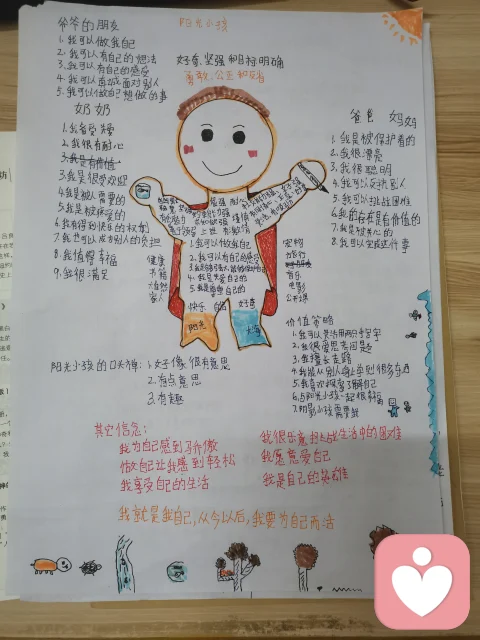 阳光小孩
好奇、坚强和目标明确
勇敢、公正和灵活
爷爷的朋友
1.我可以做我自己
2.我可以有自己的想法
3.我可以有自己的感受
4.我可以真诚面对别人
5.我可以做自己想做的事
奶奶
1.我备受关爱
2.我很有耐心
3.我是有价值
3.我是很受欢迎
4.我是被人需要的
5.我是被疼爱的
6.我有得到快乐的权利
7.我也可以成为别人的负担
8.我值得幸福
9.我很满足
爸爸 妈妈
1.我是被保护着的
2.我很漂亮
3.我很聪明
4.我可以反抗别人
5.我可以挑战困难
6.我的存在是有价值的
7.我是被关心的
8.我可以完成这件事
1.我可以做我自己
2.我可以有自己的感受
5.我是尊重自己的
健康
书籍
大自然
家人
宠物
旅行
音乐
电影
公开课
快乐 自信 好奇
阳光
大海
价值策略
1.我可以灵活用两只手写字
2.我很爱思考问题
3.我擅长走路
4.我能从别人身上学到很多东西
5.我喜欢探索了解自己
6.与阳光小孩一起很幸福
7.阴影小孩需要我
阳光小孩的口头禅:1.好像很有意思
2.有点意思
3.有趣
其它信念:
我为自己感到骄傲
做自己让我感到轻松
我享受自己的生活
我很乐意挑战生活中的困难
我愿意爱自己
我是自己的英雄
我就是我自己,从今以后,我要为自己而活